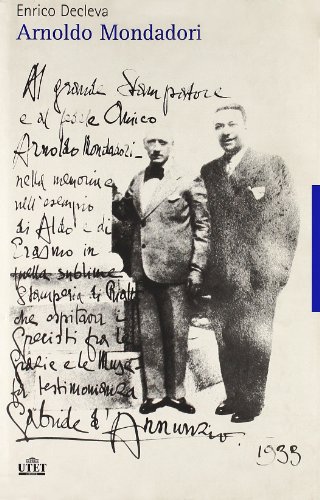 Enrico Decleva
Arnoldo Mondadori
Al grande Stampatore
e al fedele Amico
Arnoldo Mondadori -
nella memoria e
nell'esempio
di Aldo e di
Erasmo in
quella sublime
Stamperia di Rialto
che ospitava i
Grecisti fra le
Grazie e le Muse
per testimonianza
Gabriele d'Annunzio.
1933
UTET